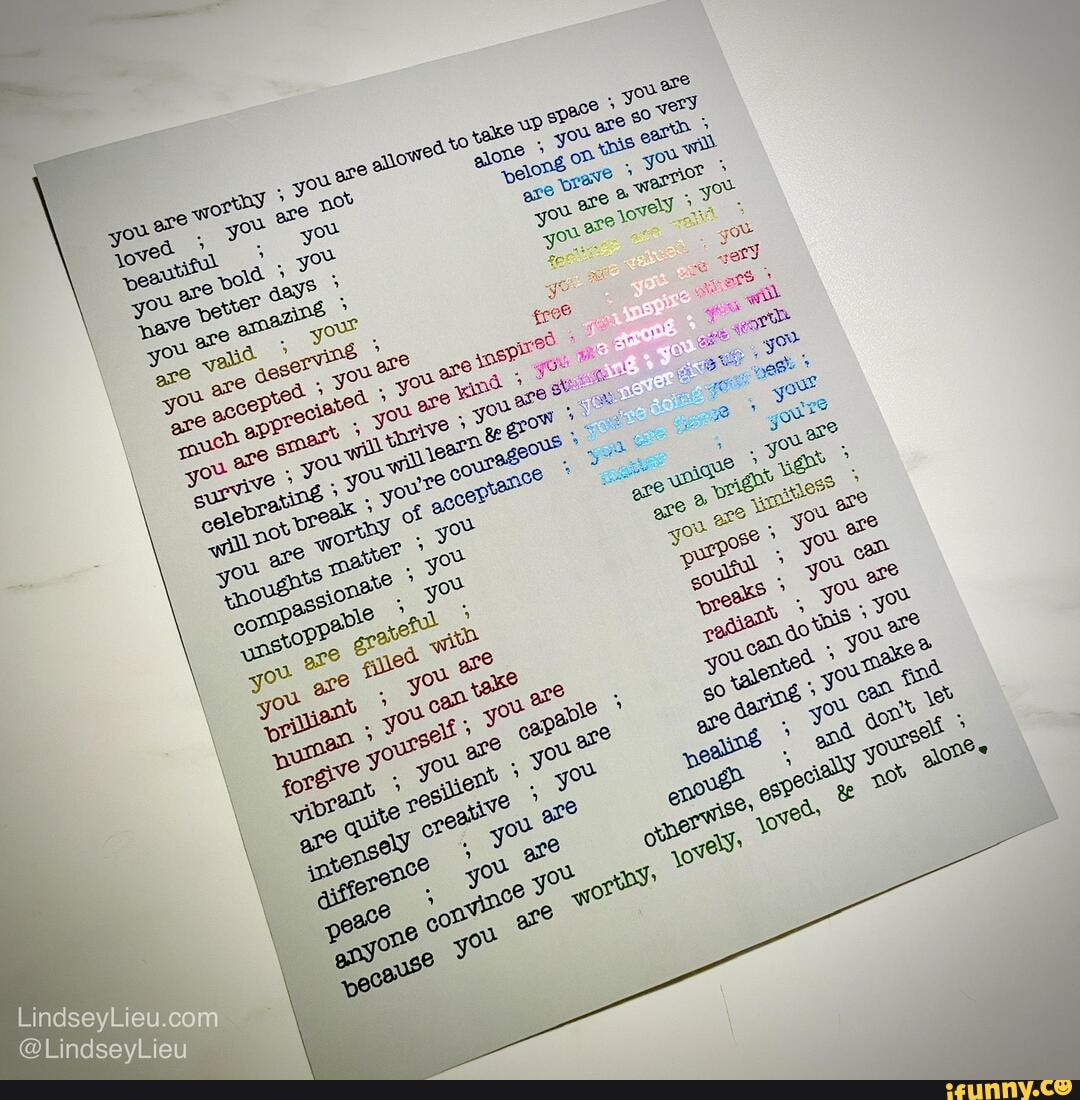 you are worthy ; you are allowed to take up space ; you are
loved ; you are not alone ; you are so very
beautiful ; you belong on this earth ;
you are bold ; you are brave ; you will
have better days ; you are a warrior ;
you are amazing ; you are lovely ; you
are valid ; your feelings are valid ;
you are deserving ; you are valued ; you
are accepted ; you are free ; you are very
much appreciated ; you are inspired ; you inspire others ;
you are smart ; you are kind ; you are strong ; you will
survive ; you will thrive ; you are stunning ; you are worth
celebrating ; you will learn & grow ; you never give up ; you
will not break ; you're courageous ; you're doing your best ;
you are worthy of acceptance ; you are fierce ; your
thoughts matter ; you matter ; you're
compassionate ; you are unique ; you are
unstoppable ; you are a bright light ;
you are grateful ; you are limitless ;
you are filled with purpose ; you are
brilliant ; you are soulful ; you are
human ; you can take breaks ; you can
forgive yourself ; you are radiant ; you are
vibrant ; you are capable ; you can do this ; you
are quite resilient ; you are so talented ; you are
intensely creative ; you are daring ; you make a
difference ; you are healing ; you can find
peace ; you are enough ; and don't let
anyone convince you otherwise, especially yourself ;
because you are worthy, lovely, loved, & not alone♥
LindseyLieu.com
@LindseyLieu
ifunny.co